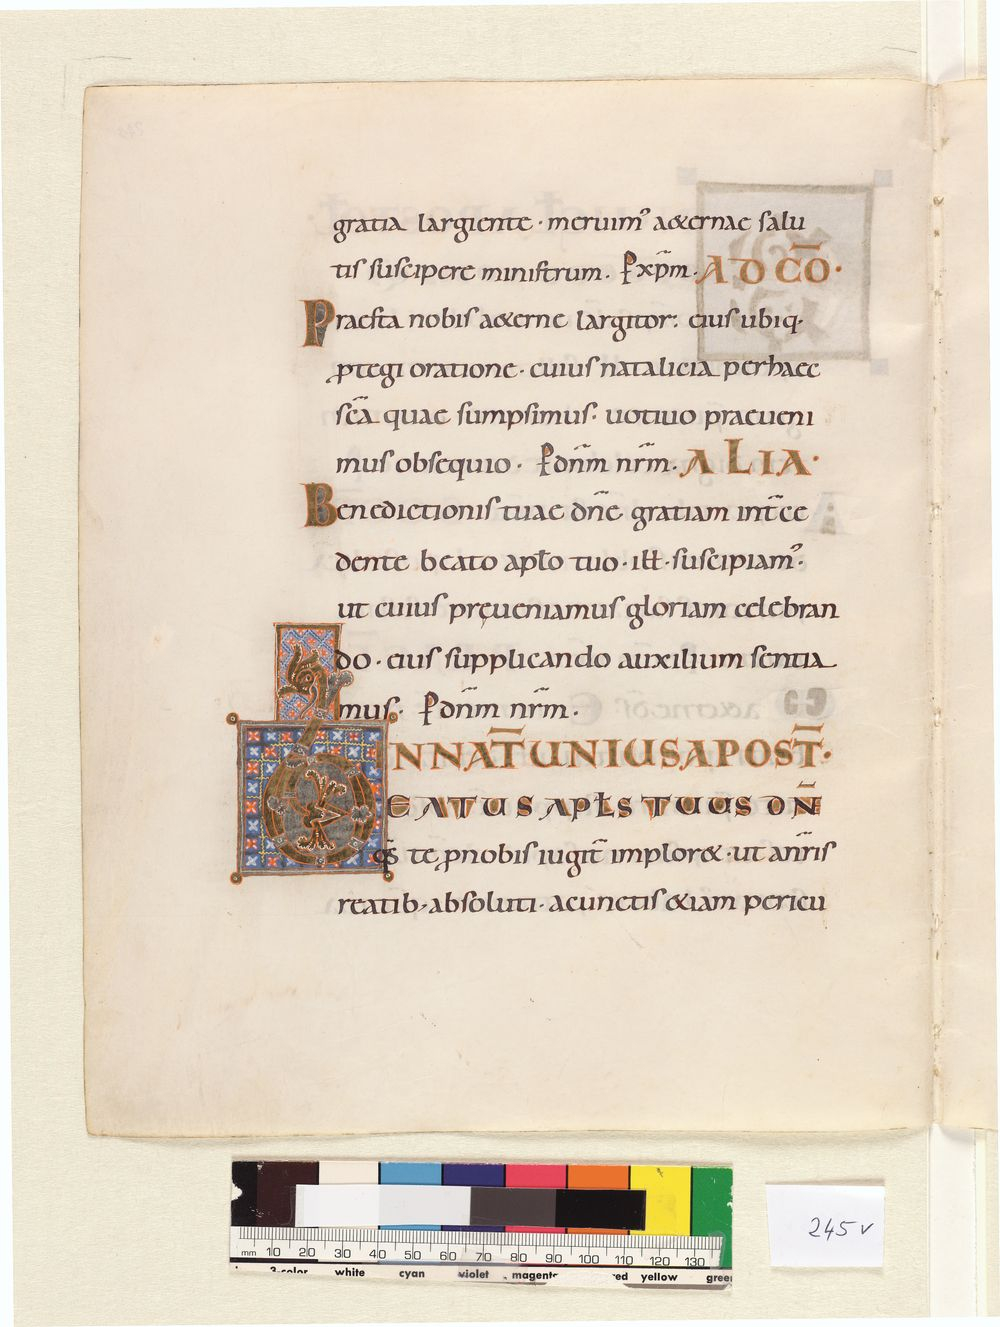 gratia largiente · meruim᾽ a&ernae salu
tis suscipere ministrum. ꝑ xp̅m. AD CO̅·
Praesta nobis a&erne largitor: eius ubiq·
ꝓtegi oratione· cuius natalicia per haec
sc̅a quae sumpsimus: uotiuo praeueni
mus obsequio · ꝑ dn̅m nr̅m. ALIA·
Benedictionis tuae dn̅e gratiam int̅ce
dente beato apł̅o tuo · ill̵ · suscipiam᾽·
ut cuius pręueniamus gloriam celebran
do · eius supplicando auxilium sentia
mus · ꝑ dn̅m nr̅m ·
IN NAT̅ UNIUS APOST̅·
BEATUS APŁS TUUS DN̅
qs̅ te ꝓ nobis iugit̅ implor& · ut a nr̅is
reatib; absoluti · a cunctis &iam pericu
245v
mm 10 20 30 40 50 60 70 80 90 100 110 120 130
3-color white cyan violet magenta red yellow green